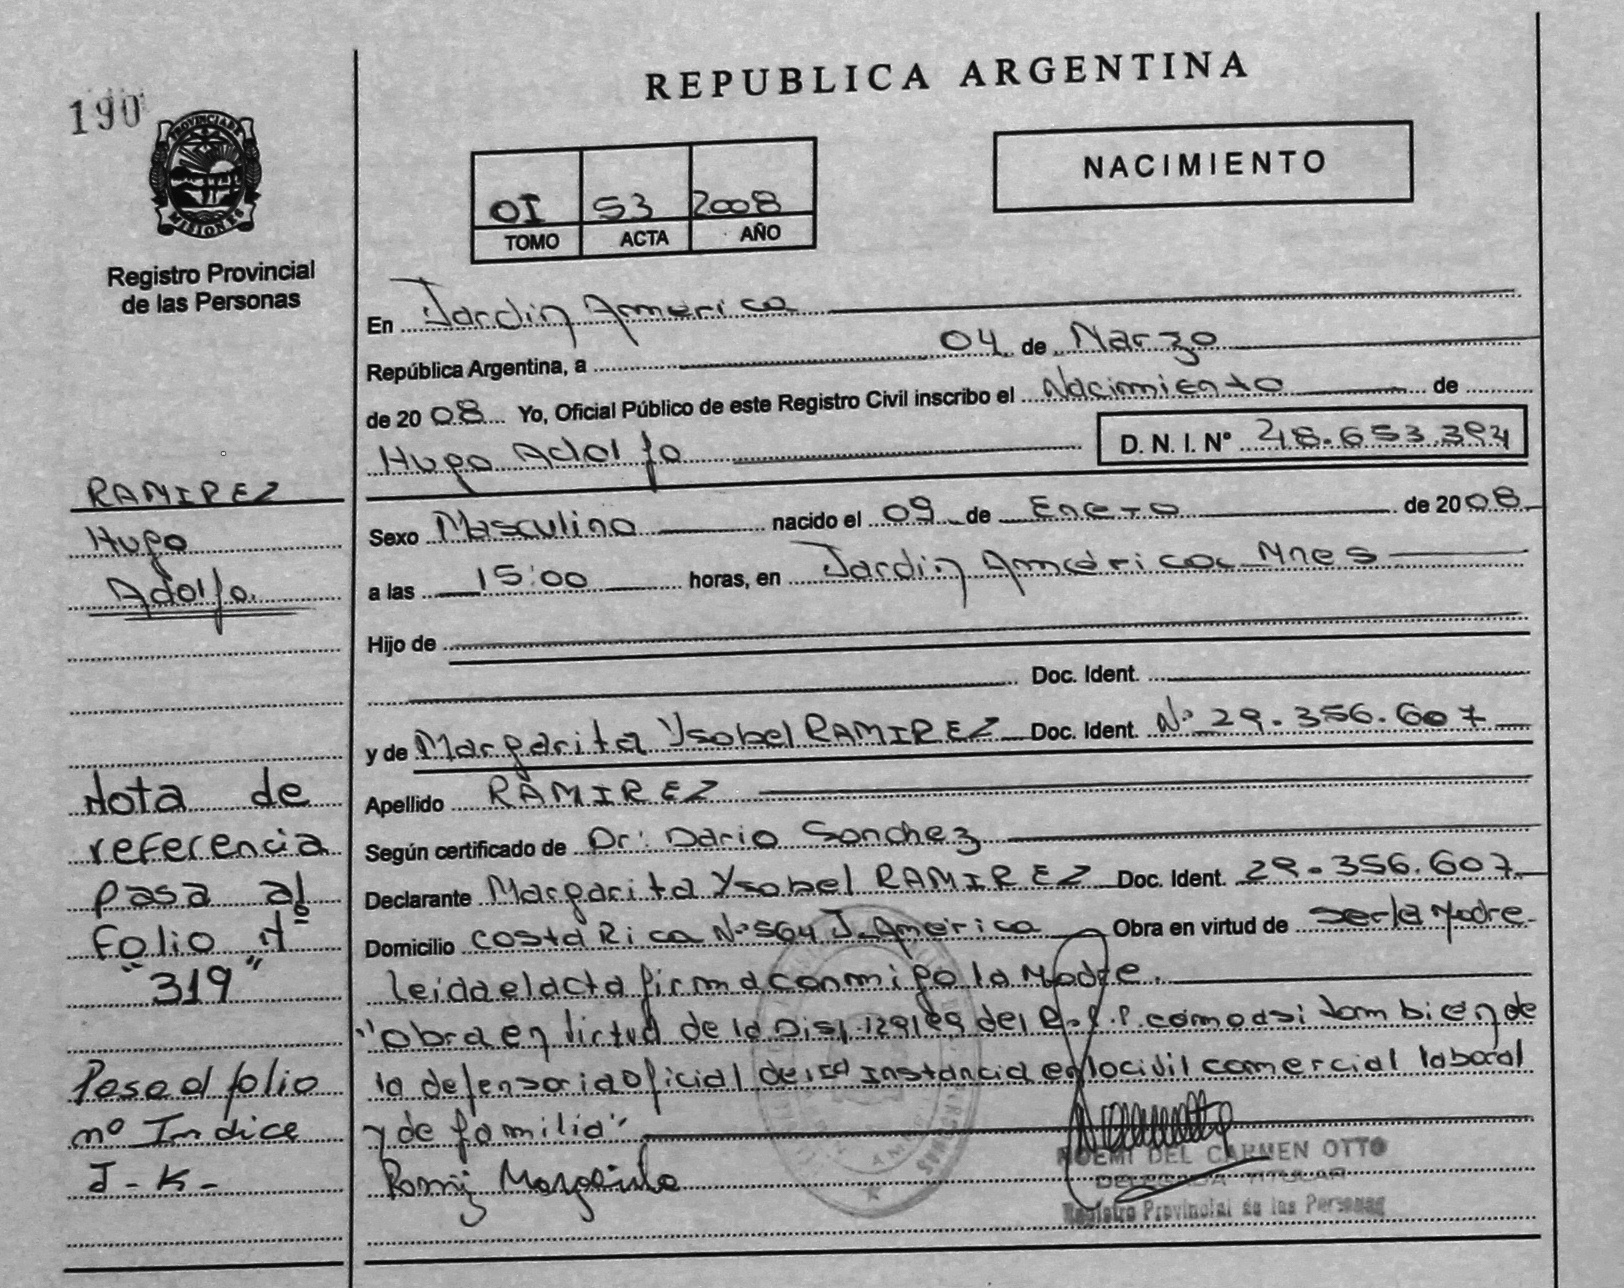 190
REPUBLICA ARGENTINA
PROVINCIA DE
MISIONES
Registro Provincial
de las Personas
NACIMIENTO
OI 53 2008
TOMO ACTA AÑO
En Jardin America
República Argentina, a 04 de Marzo
de 2008 Yo, Oficial Público de este Registro Civil inscribo el Nacimiento de
Hugo Adolfo D. N. I. Nº 48.653.394
Sexo Masculino nacido el 09 de Enero de 2008
a las 15:00 horas, en Jardin América Mnes
Hijo de
Doc. Ident.
y de Margarita Ysabel RAMIREZ Doc. Ident. Nº 29.356.607
Apellido RAMIREZ
Según certificado de Dr: Dario Sanchez
Declarante Margarita Ysabel RAMIREZ Doc. Ident. 29.356.607
Domicilio Costa Rica Nº 564 J. América Obra en virtud de ser la Madre
leida el acta firma conmigo la Madre.
"Obra en virtud de la Disp. 129/89 del R.P.P. como asi tambien de
la defensoria oficial de 1ra Instancia en lo civil comercial laboral
y de familia"
NOEMI DEL CARMEN OTTO
DELEGADA TITULAR
Registro Provincial de las Personas
RAMIREZ
Hugo
Adolfo.
Nota de
referencia
pasa al
Folio Nº
"319"
Pase al folio
nº Indice
J - K -